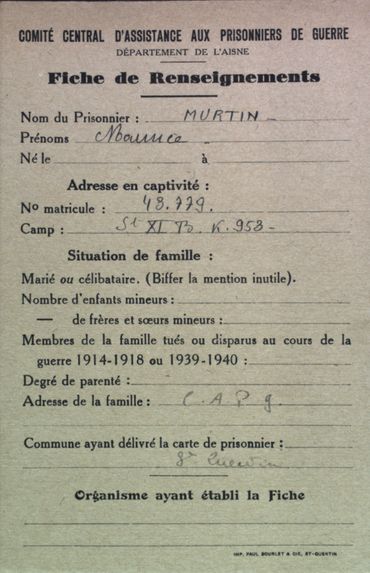 COMITÉ CENTRAL D'ASSISTANCE AUX PRISONNIERS DE GUERRE
DÉPARTEMENT DE L'AISNE
Fiche de Renseignements
Nom du Prisonnier : MURTIN
Prénoms Maurice
Né le à
Adresse en captivité :
No matricule : 48.779.
Camp : St XI B. K. 953 -
Situation de famille :
Marié ou célibataire. (Biffer la mention inutile).
Nombre d'enfants mineurs :
— de frères et sœurs mineurs :
Membres de la famille tués ou disparus au cours de la
guerre 1914-1918 ou 1939-1940 :
Degré de parenté :
Adresse de la famille : C. A. P. g.
Commune ayant délivré la carte de prisonnier :
St Quentin
Organisme ayant établi la Fiche
IMP. PAUL BOURLET & CIE, ST-QUENTIN